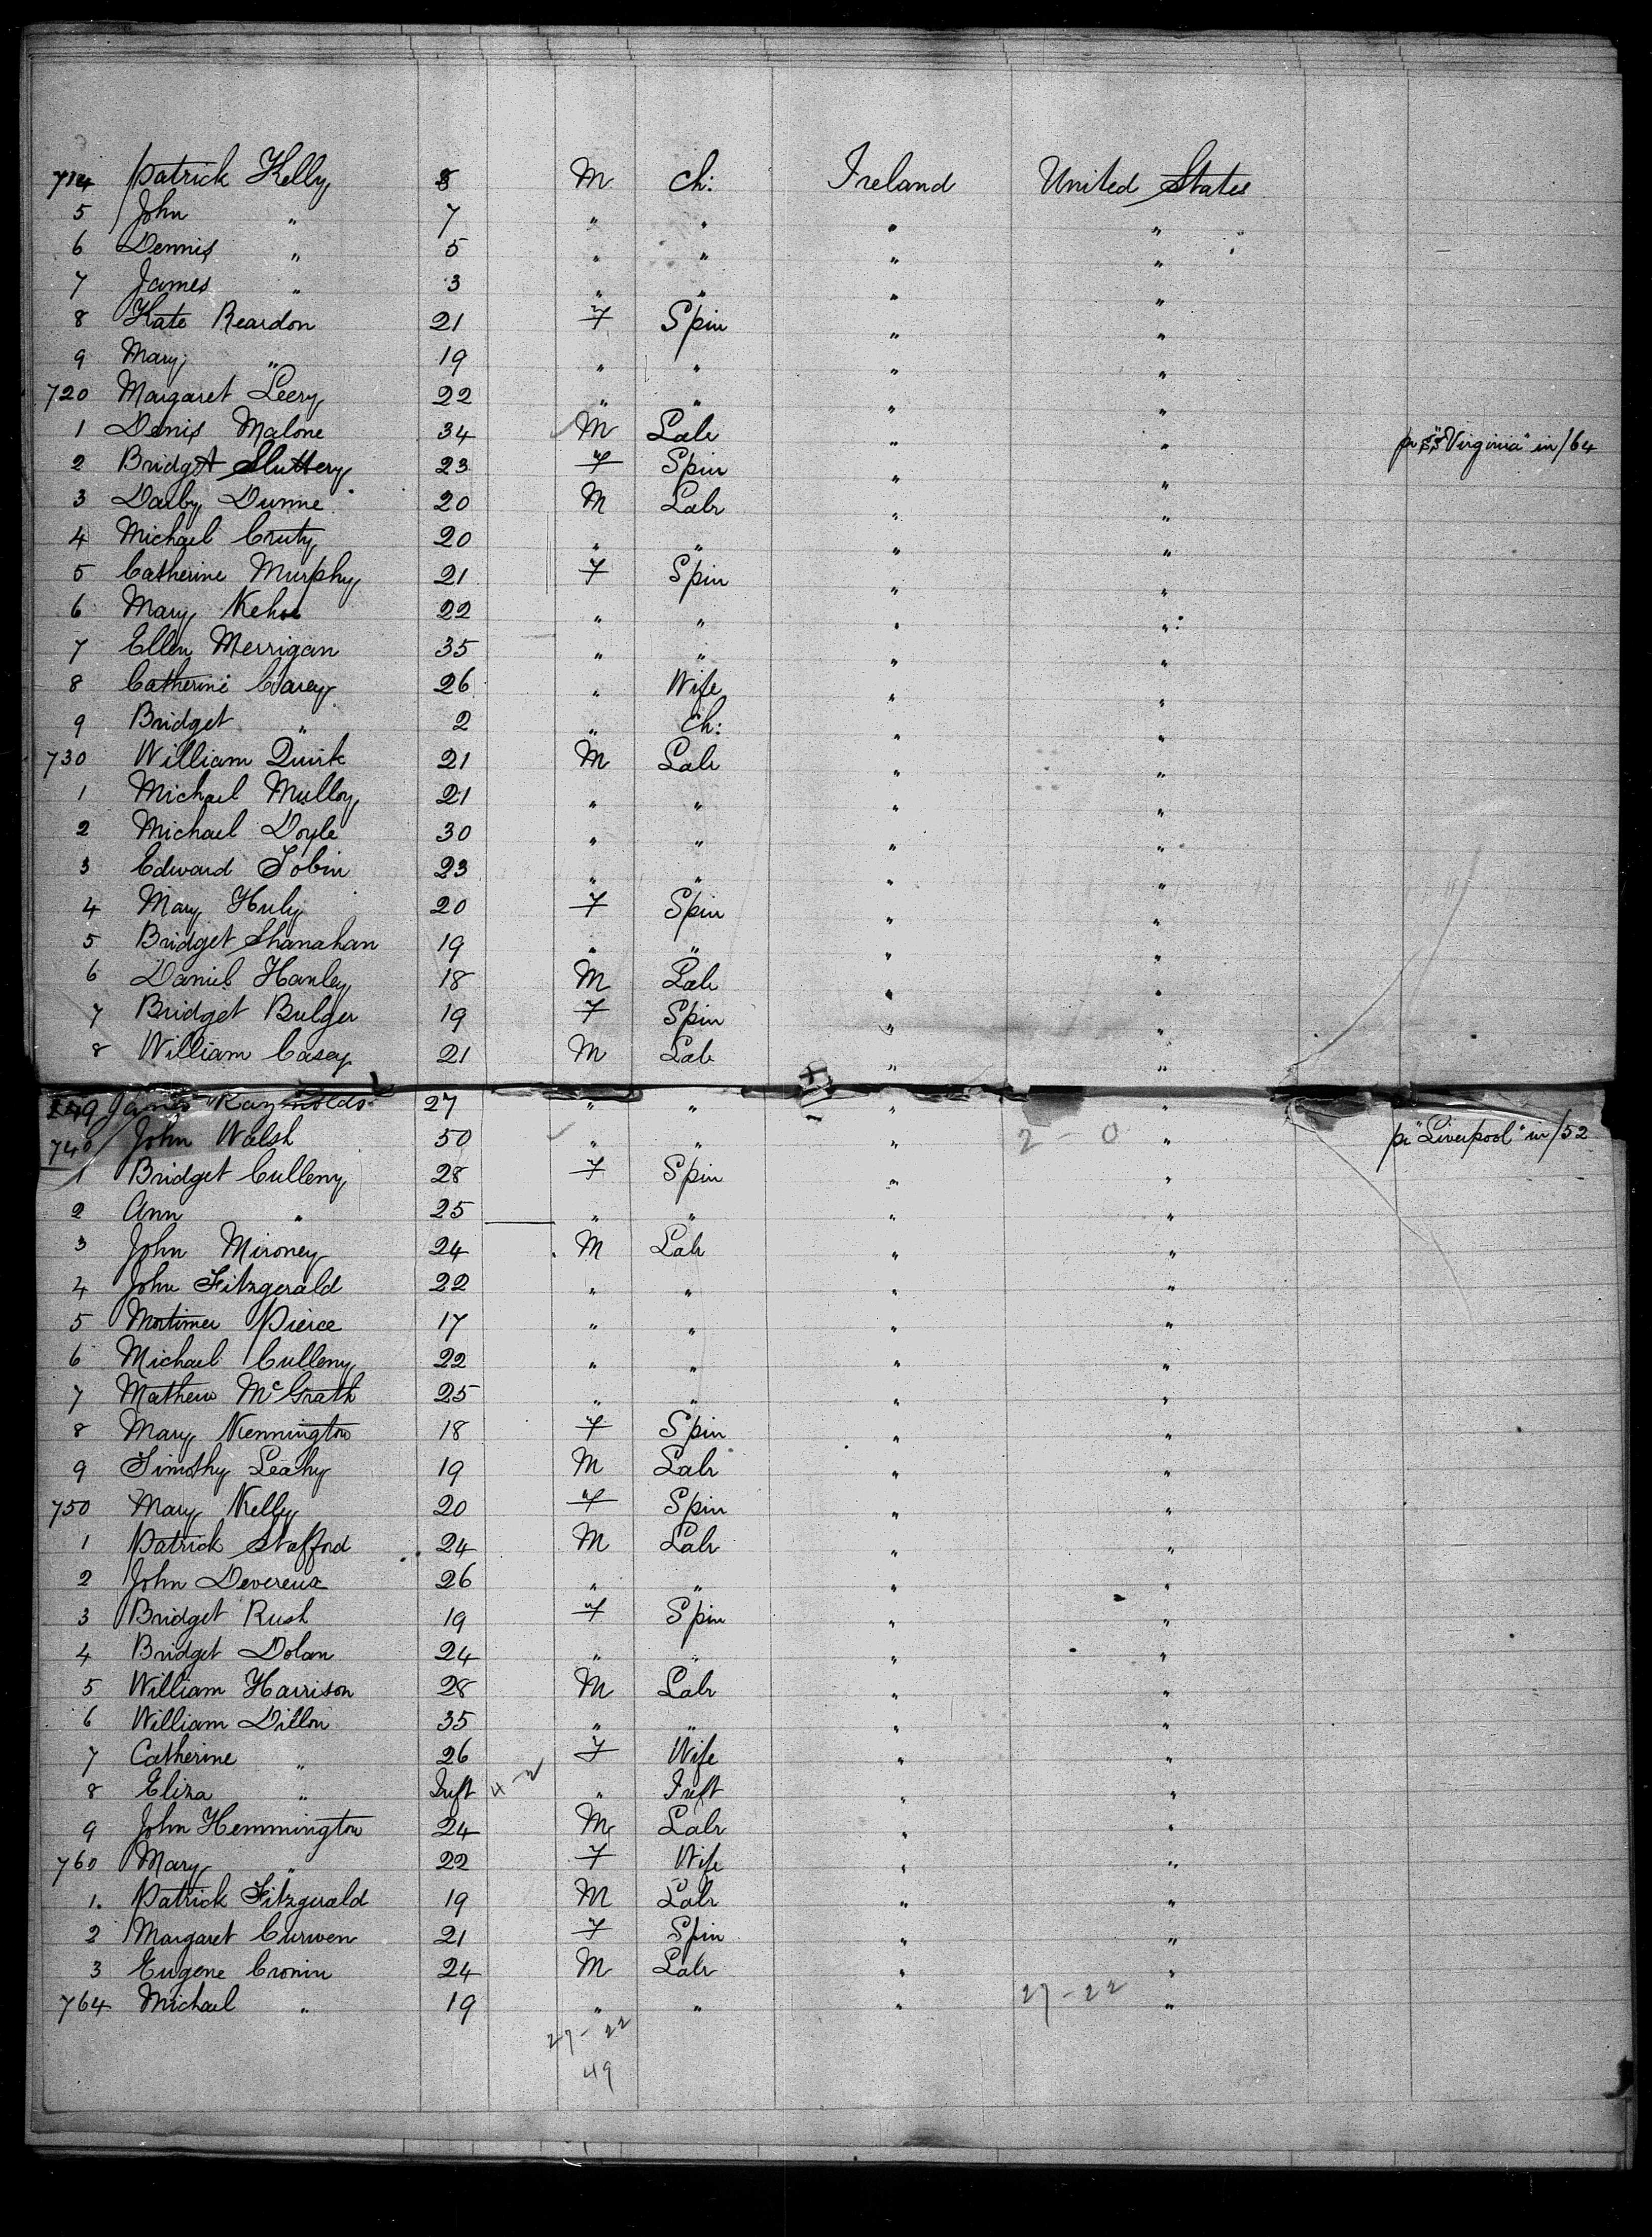 714 Patrick Kelly 8 M Ch: Ireland United States
5 John " 7 " " " "
6 Dennis " 5 " " " "
7 James " 3 " " " "
8 Kate Reardon 21 F Spin " "
9 Mary " 19 " " " "
720 Margaret Leery 22 " " " "
1 Denis Malone 34 M Labr " " pr SS "Virginia" in /64
2 Bridget Sluttery 23 F Spin " "
3 Darby Dunne 20 M Labr " "
4 Michael Cruty 20 " " " "
5 Catherine Murphy 21 F Spin " "
6 Mary Kehoe 22 " " " "
7 Ellen Merrigan 35 " " " "
8 Catherine Carey 26 " Wife " "
9 Bridget " 2 " Ch: " "
730 William Quirk 21 M Labr " "
1 Michael Mulloy 21 " " " "
2 Michael Doyle 30 " " " "
3 Edward Tobin 23 " " " "
4 Mary Huly 20 F Spin " "
5 Bridget Shanahan 19 " " " "
6 Daniel Hanley 18 M Labr " "
7 Bridget Bulger 19 F Spin " "
8 William Casey 21 M Labr " "
9 James Raynolds 27 " " " "
740 John Walsh 50 " " " 2 - 0 " pr "Liverpool" in /52
1 Bridget Culleny 28 F Spin " "
2 Ann " 25 " " " "
3 John Mironey 24 M Labr " "
4 John Fitzgerald 22 " " " "
5 Mortimer Pierce 17 " " " "
6 Michael Culleny 22 " " " "
7 Mathew McGrath 25 " " " "
8 Mary Kennington 18 F Spin " "
9 Timothy Leahy 19 M Labr " "
750 Mary Kelly 20 F Spin " "
1 Patrick Stafford 24 M Labr " "
2 John Devereux 26 " " " "
3 Bridget Rush 19 F Spin " "
4 Bridget Dolan 24 " " " "
5 William Harrison 28 M Labr " "
6 William Dillon 35 " " " "
7 Catherine " 26 F Wife " "
8 Eliza " Inft " Inft " "
9 John Hemmington 24 M Labr " "
760 Mary " 22 F Wife " "
1. Patrick Fitzgerald 19 M Labr " "
2 Margaret Curwen 21 F Spin " "
3 Eugene Cronin 24 M Labr " "
764 Michael " 19 " " " 27-22 "
27-22
49